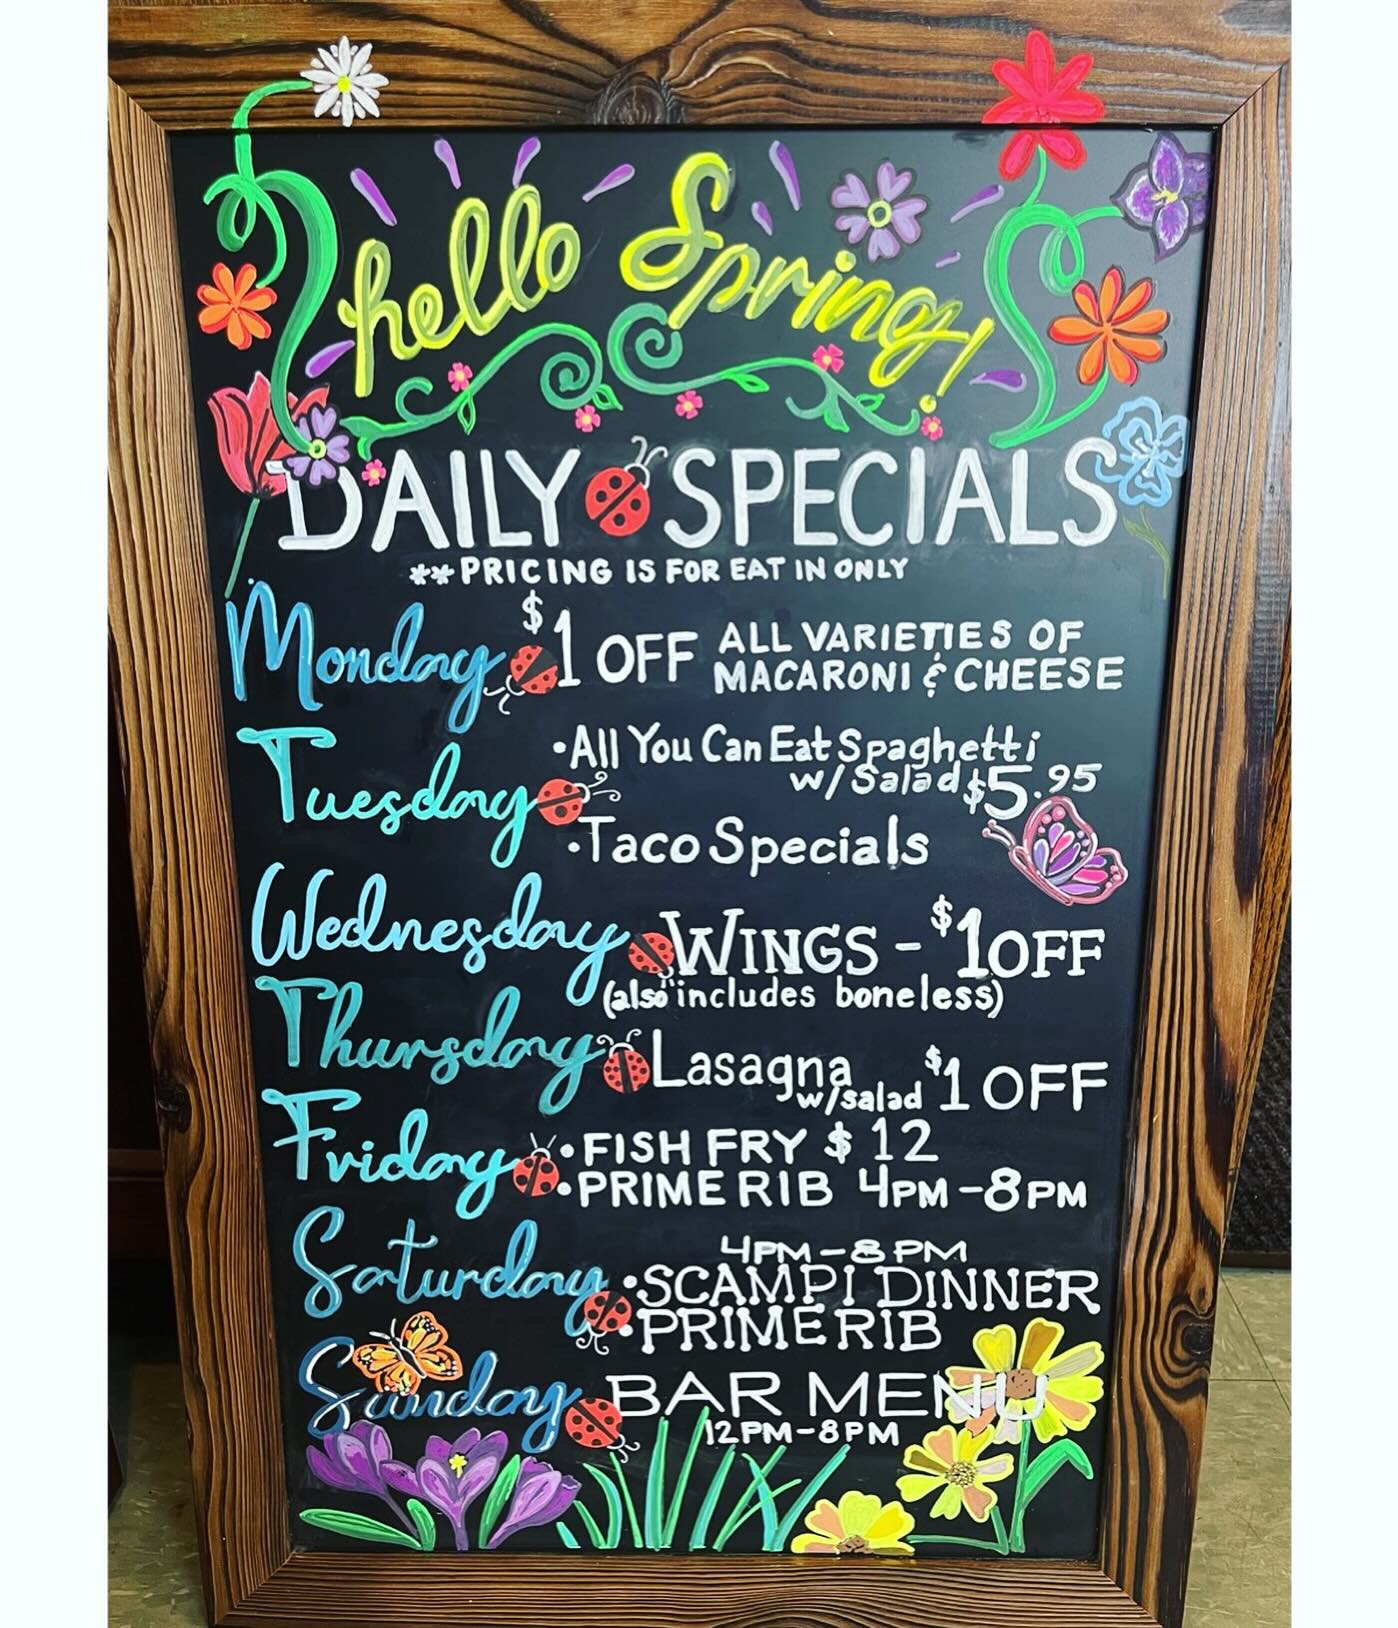 hello Spring!
DAILY SPECIALS
**PRICING IS FOR EAT IN ONLY
Monday $1 OFF ALL VARIETIES OF
MACARONI & CHEESE
Tuesday •All You Can Eat Spaghetti
w/Salad $5.95
•Taco Specials
Wednesday WINGS - $1 OFF
(also includes boneless)
Thursday Lasagna w/salad $1 OFF
Friday •FISH FRY $12
•PRIME RIB 4PM-8PM
Saturday 4PM-8PM
•SCAMPI DINNER
•PRIME RIB
Sunday BAR MENU
12PM-8PM